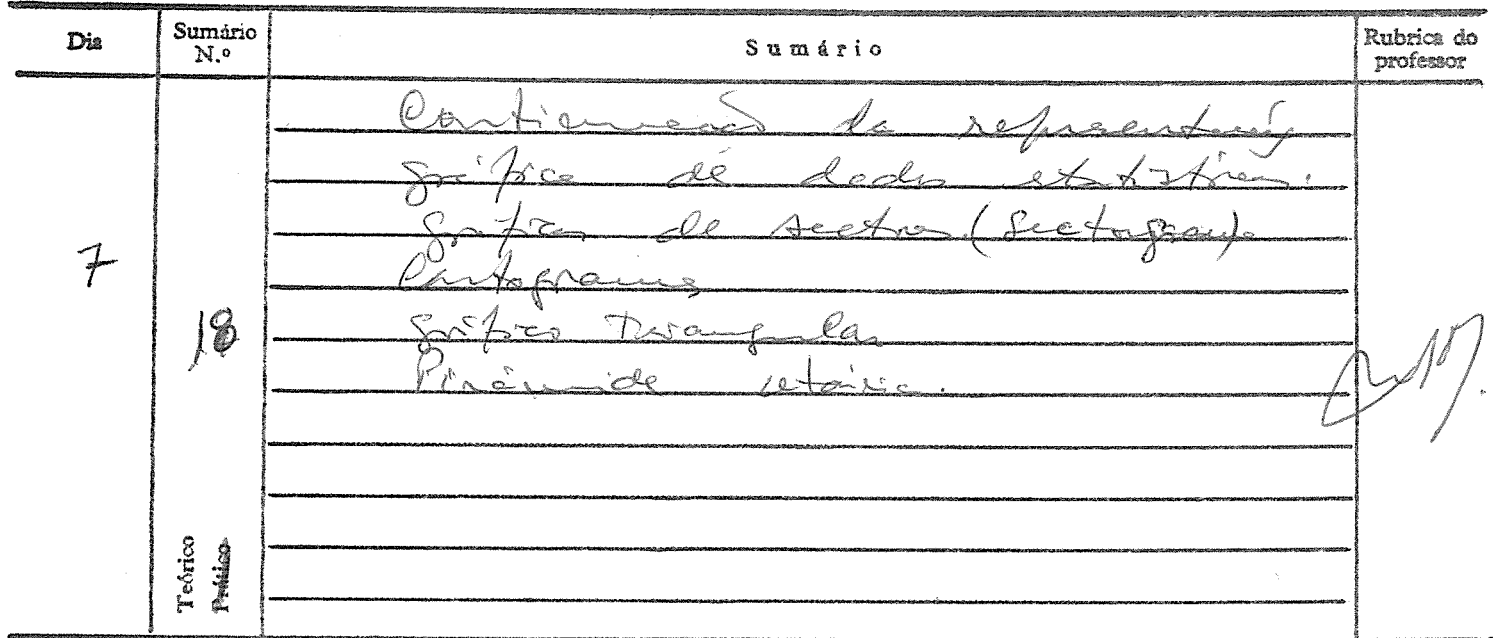 Dia
Sumário N.º
Sumário
Rubrica do professor
7
18
Continuação da representação
gráfica de dados estatísticos.
Gráficos de sectores (Sectograma)
Cartograma
Gráfico Triangular
Pirâmide etária.
Teórico
Prático